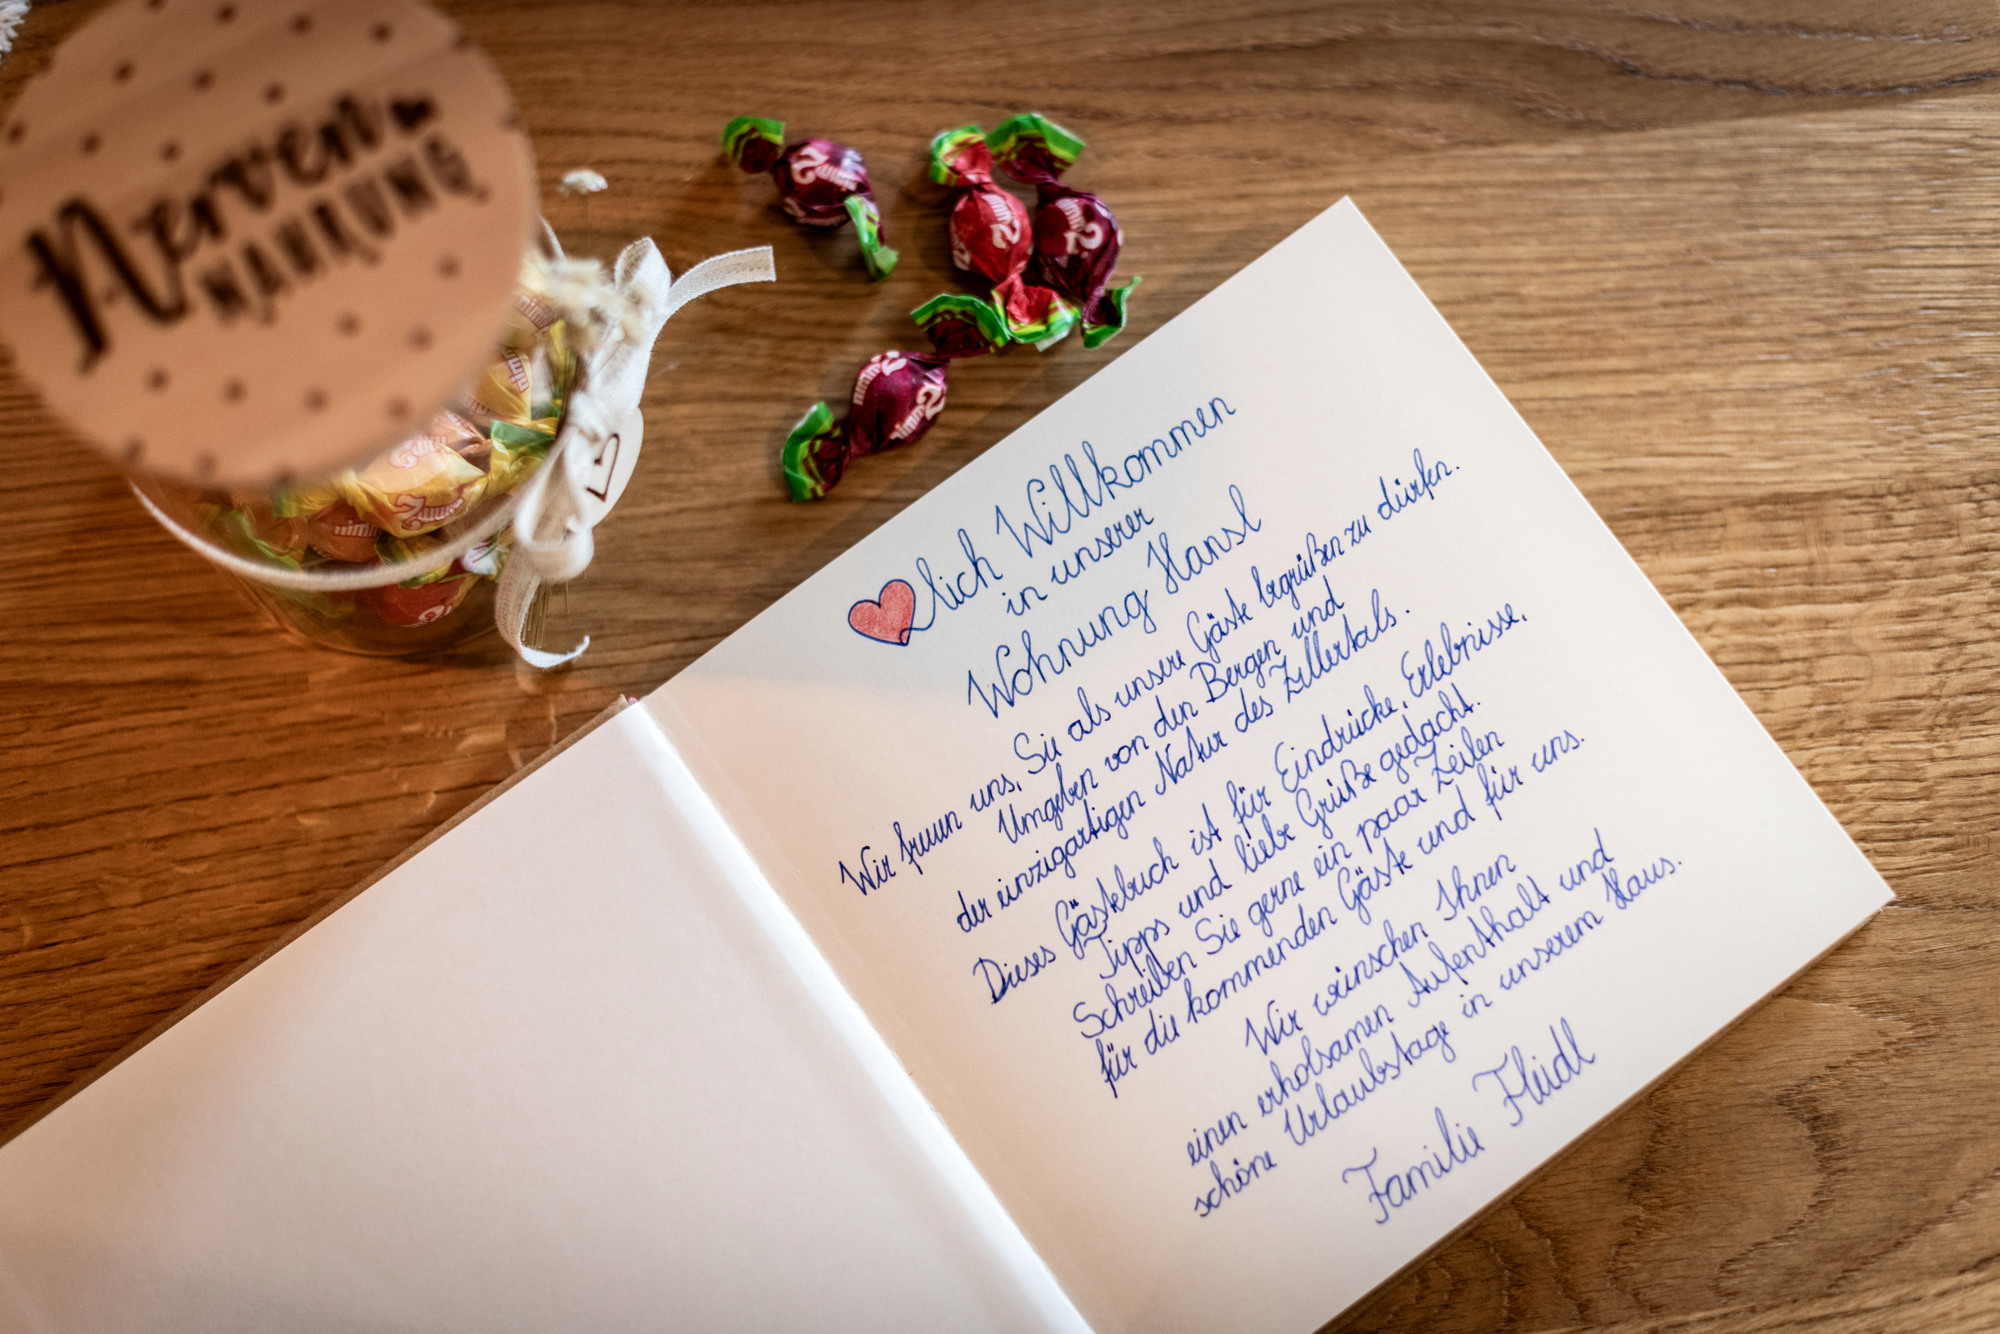 Nerven
NAHRUNG
nimm2
nimm2
nimm2
nimm2
nimm2
lich Willkommen
in unserer
Wohnung Hansl
Wir freuen uns, Sie als unsere Gäste begrüßen zu dürfen.
Umgeben von den Bergen und
der einzigartigen Natur des Zillertals.
Dieses Gästebuch ist für Eindrücke, Erlebnisse,
Tipps und liebe Grüße gedacht.
Schreiben Sie gerne ein paar Zeilen
für die kommenden Gäste und für uns.
Wir wünschen Ihnen
einen erholsamen Aufenthalt und
schöne Urlaubstage in unserem Haus.
Familie Fleidl